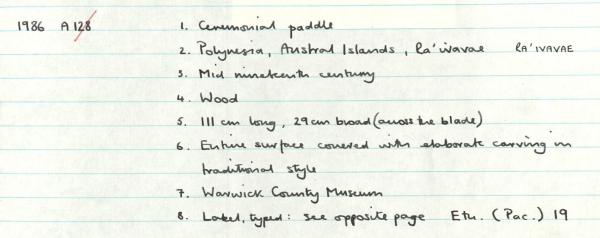 1986 A 128 1. Ceremonial paddle
2. Polynesia, Austral Islands, Ra'ivavae RA'IVAVAE
3. Mid nineteenth century
4. Wood
5. 111 cm long, 29 cm broad (across the blade)
6. Entire surface covered with elaborate carving in
traditional style
7. Warwick County Museum
8. Label, typed: see opposite page Eth. (Pac.) 19